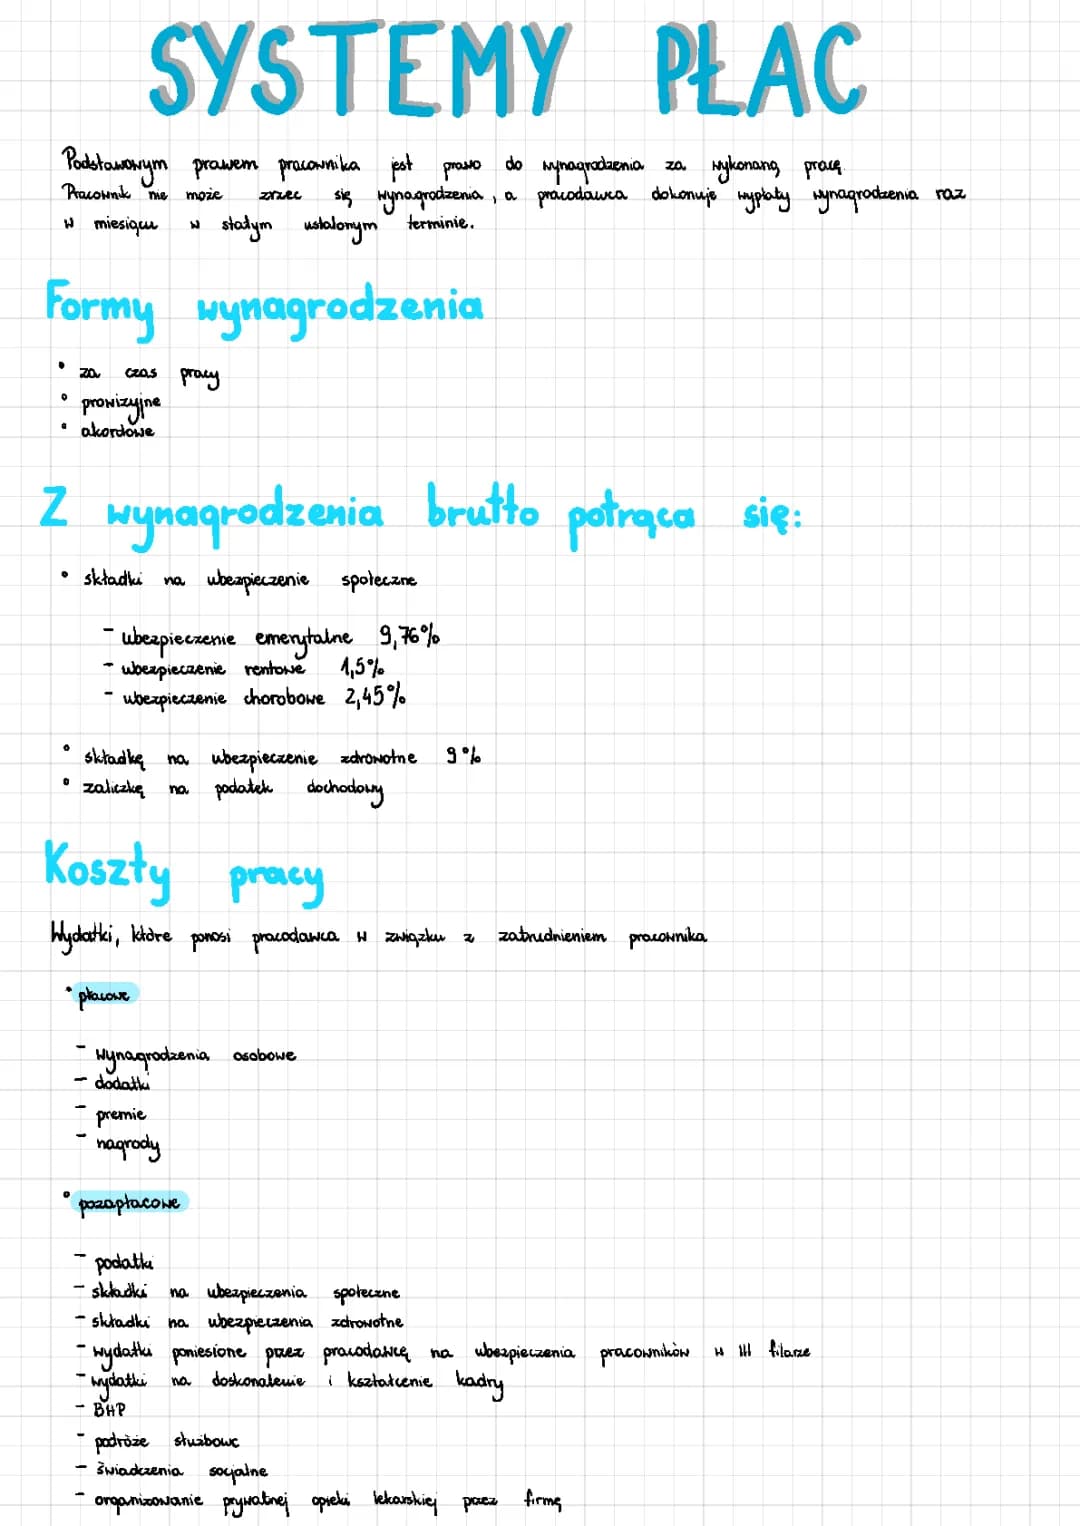 SYSTEMY PŁAC
Podstawowym prawem pracownika jest prawo do wynagrodzenia za wykonaną pracę.
Pracownik nie może zrzec się wynagrodzenia, a pracodawca dokonuje wypłaty wynagrodzenia raz
w miesiącu w stałym ustalonym terminie.
Formy wynagrodzenia
• za czas pracy
• prowizyjne
• akordowe
Z wynagrodzenia brutto potrąca się:
• składki na ubezpieczenie społeczne
- ubezpieczenie emerytalne 9,76%
- ubezpieczenie rentowe 1,5%
- ubezpieczenie chorobowe 2,45%
• składkę na ubezpieczenie zdrowotne 9%
• zaliczkę na podatek dochodowy
Koszty pracy
Wydatki, które ponosi pracodawca w związku z zatrudnieniem pracownika
• płacowe
- wynagrodzenia osobowe
- dodatki
- premie
- nagrody
• pozapłacowe
- podatki
- składki na ubezpieczenia społeczne
- składki na ubezpieczenia zdrowotne
- wydatki poniesione przez pracodawcę na ubezpieczenia pracowników w III filarze
- wydatki na doskonalenie i kształcenie kadry
- BHP
- podróże służbowe
- świadczenia socjalne
- organizowanie prywatnej opieki lekarskiej przez firmę